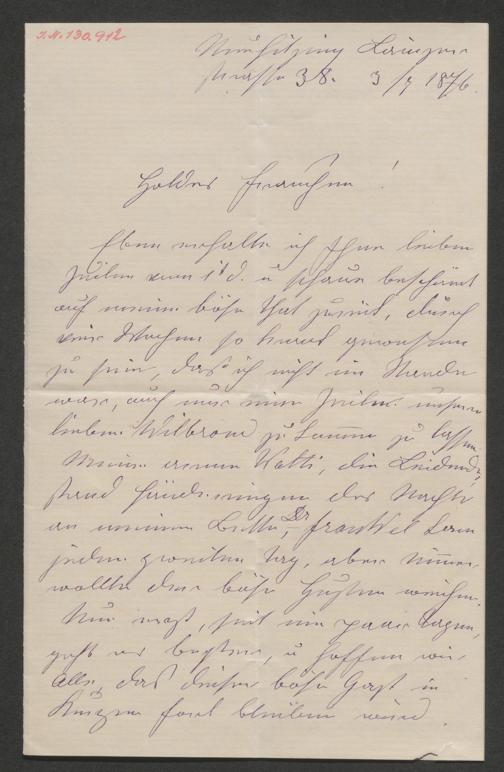 I.N. 130.912
Neuhitzing Lainzer
strasse 38. 3/7 1876.
Holdes Frauchen!
Eben erhalte ich Ihre lieben
Zeilen vom 1t d. u schaue beschämt
auf meine böse That zurück, durch
vier Wochen so krank gewesen
zu sein, daß ich nicht im Stande
war, auch nur eine Zeile unserm
lieben Wilbrand zu kommen zu lassen.
Meine arme Katti, die Leidende,
stand händeringend des Nachts
an meinem Bette, Dr Frankel kam
jeden zweiten Tag, aber nimmer
wollte der böse Husten weichen.
Nun erst, seit ein paar Tagen,
geht es besser, u hoffen wir
Alle, das dieser böse Gast in
Kurzem fort bleiben wird.